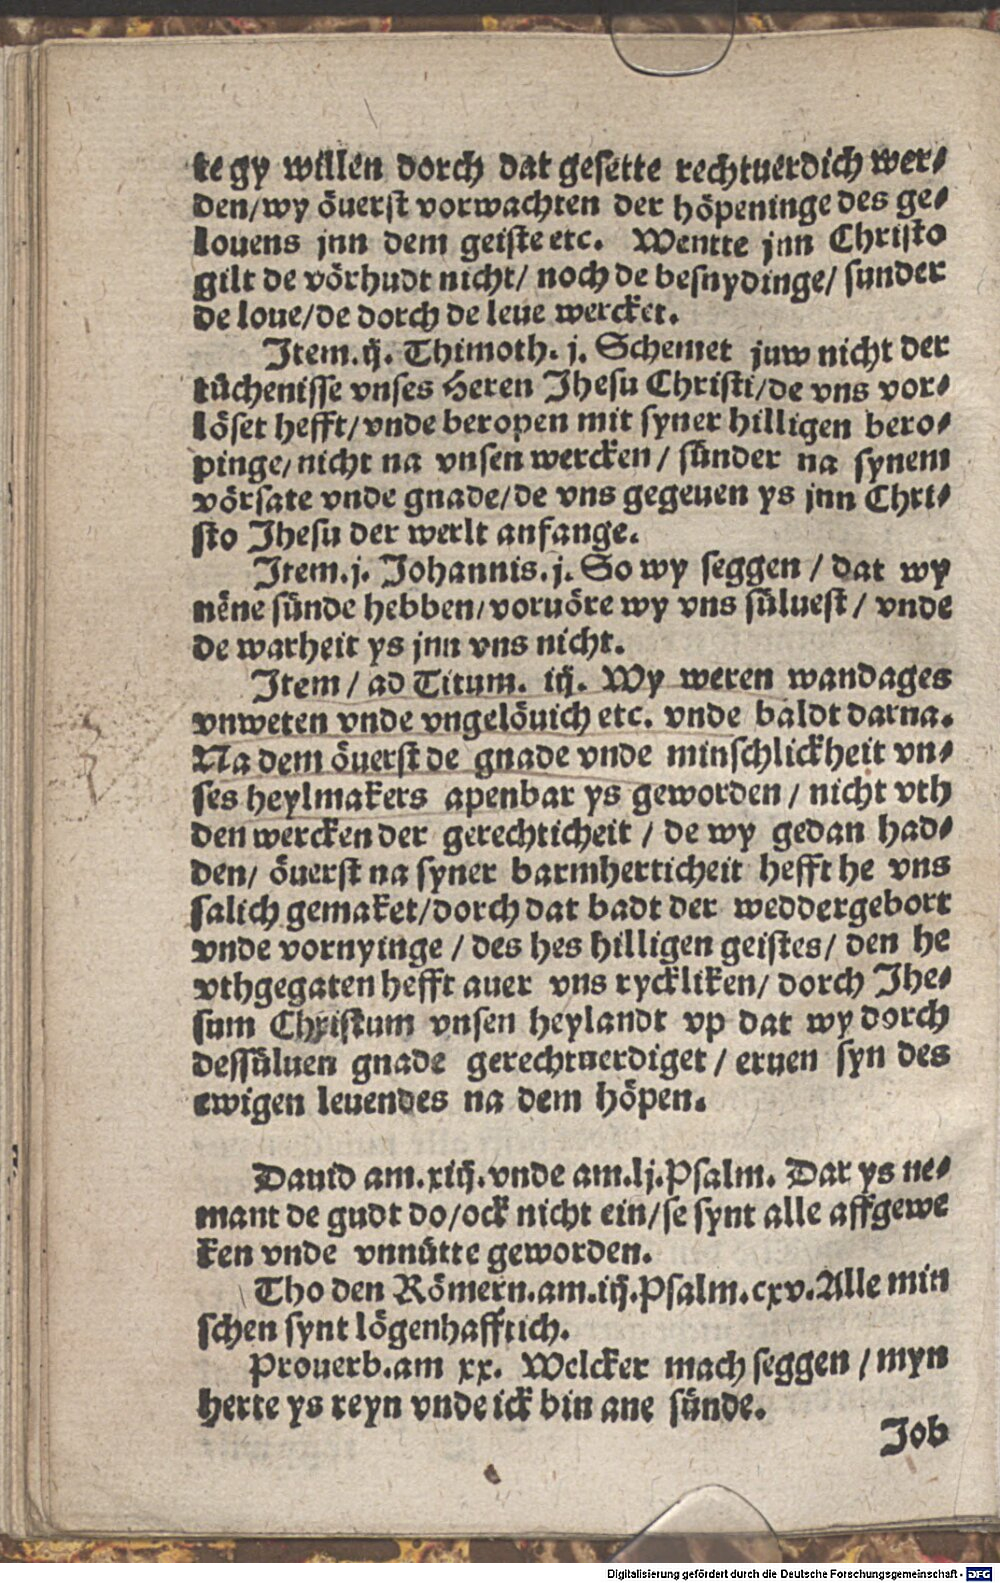 te gy willen dorch dat gesette rechtuerdich wer⸗
den/wy öuerst vorwachten der höpeninge des ge⸗
louens jnn dem geiste etc. Wentte jnn Christo
gilt de vörhudt nicht/ noch de besnydinge/ sunder
de loue/de dorch de leue wercket.
Item.ij. Thimoth. j. Schemet juw nicht der
tüchenisse vnses Heren Jhesu Christi/de vns vor⸗
löset hefft/vnde beropen mit syner hilligen bero⸗
pinge/nicht na vnsen wercken / sünder na synem
vörsate vnde gnade/de vns gegeuen ys jnn Chri⸗
sto Jhesu der werlt anfange.
Item.j. Johannis.j. So wy seggen / dat wy
nëne sünde hebben/voruöre wy vns süluest / vnde
de warheit ys jnn vns nicht.
Item / ad Titum. iij. Wy weren wandages
vnweten vnde vngelöuich etc. vnde baldt darna.
Na dem öuerst de gnade vnde minschlickheit vn⸗
ses heylmakers apenbar ys geworden / nicht vth
den wercken der gerechticheit / de wy gedan had⸗
den/ öuerst na syner barmherticheit hefft he vns
salich gemaket/dorch dat badt der weddergebort
vnde vornyinge / des hes hilligen geistes/ den he
vthgegaten hefft auer vns ryckliken/ dorch Jhe⸗
sum Christum vnsen heylandt vp dat wy dorch
dessüluen gnade gerechtuerdiget / eruen syn des
ewigen leuendes na dem höpen.
Dauid am.xiij.vnde am.lj.Psalm. Dar ys ne⸗
mant de gudt do/ock nicht ein/se synt alle affgewe
ken vnde vnnütte geworden.
Tho den Römern.am.iij.Psalm.cxv.Alle min
schen synt lögenhafftich.
Prouerb.am xx. Welcker mach seggen / myn
herte ys reyn vnde ick bin ane sünde.
Job
Digitalisierung gefördert durch die Deutsche Forschungsgemeinschaft - DFG